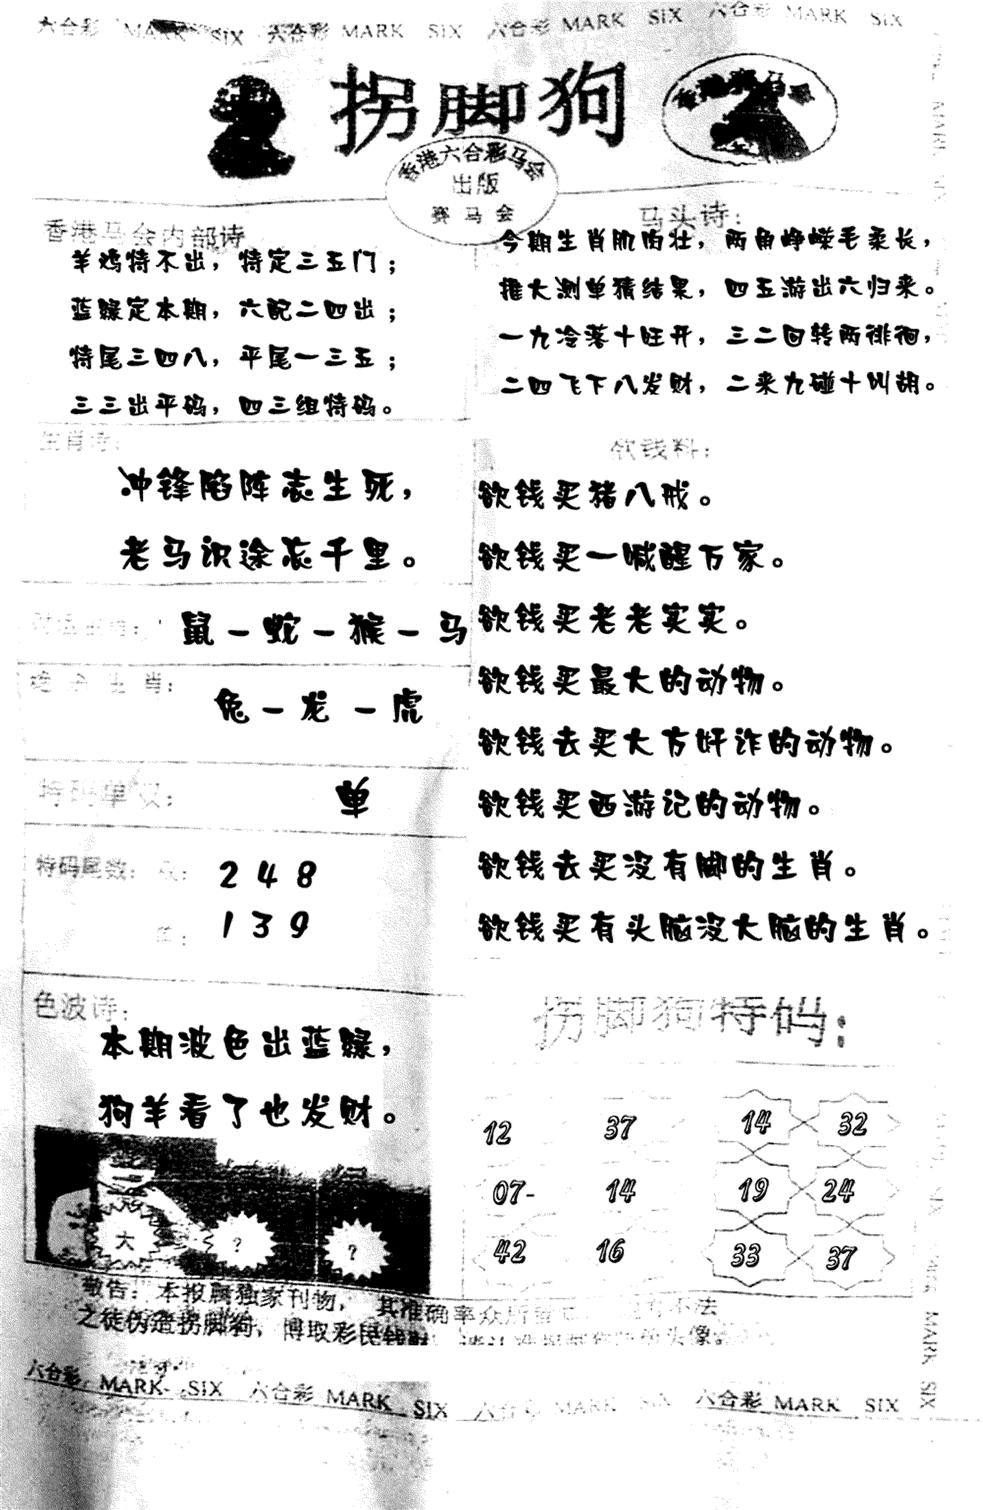 六合彩 MARK SIX 六合彩 MARK SIX 六合彩 MARK SIX 六合彩 MARK SIX
拐脚狗
香港赛马会
香港六合彩马会
出版
赛马会
香港马会内部诗
羊鸡特不出，特定三五门；
蓝绿定本期，六配二四出；
特尾三四八，平尾一三五；
三三出平码，四三组特码。
马头诗：
今期生肖肌肉壮，两角峥嵘毛柔长，
推大测单猜结果，四五游出六归来。
一九冷落十旺开，三二回转两徘徊，
二四飞下八发财，二来九碰十叫胡。
生肖诗：
冲锋陷阵忘生死，
老马识途忘千里。
鼠－蛇－猴－马
绝杀生肖：
兔－龙－虎
特码单双：
单
特码尾数：双：
2 4 8
单：
1 3 9
色波诗：
本期波色出蓝绿，
狗羊看了也发财。
大 ? ?
欲钱料：
欲钱买猪八戒。
欲钱买一喊醒万家。
欲钱买老老实实。
欲钱买最大的动物。
欲钱去买大方奸诈的动物。
欲钱买西游记的动物。
欲钱去买没有脚的生肖。
欲钱买有头脑没大脑的生肖。
拐脚狗特码：
12 37 14 32
07- 14 19 24
42 16 33 37
敬告：本报属独家刊物，其准确率众所
之徒伪造拐脚狗，博取彩民钱财
六合彩 MARK SIX 六合彩 MARK SIX 六合彩 MARK SIX 六合彩 MARK SIX
MARK SIX